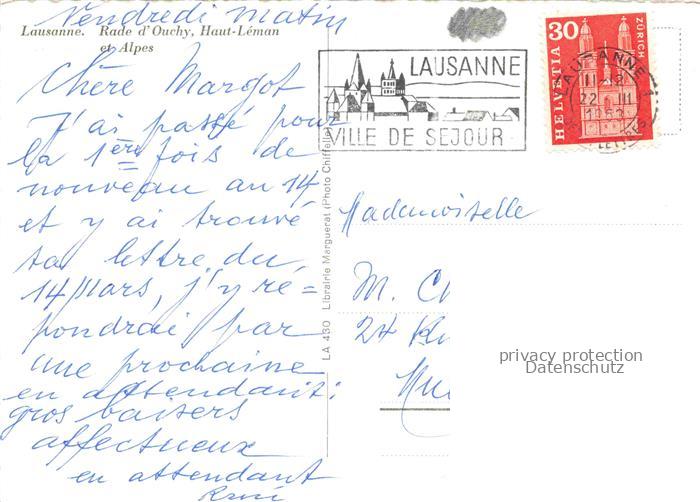 Vendredi matin
Lausanne. Rade d'Ouchy, Haut-Léman
et Alpes
Chère Margot
J'ai passé pour
la 1ère fois de
nouveau au 14
et y ai trouvé
ta lettre du
14 Mars, j'y ré=
pondrai par
une prochaine
en attendant:
gros baisers
affectueux
en attendant
LA 430 Librairie Marguerat (Photo Chiffelle)
LAUSANNE
VILLE DE SEJOUR
HELVETIA
30
ZÜRICH
LAUSANNE 1
22. III
1963
Mademoiselle
M.
24
privacy protection
Datenschutz